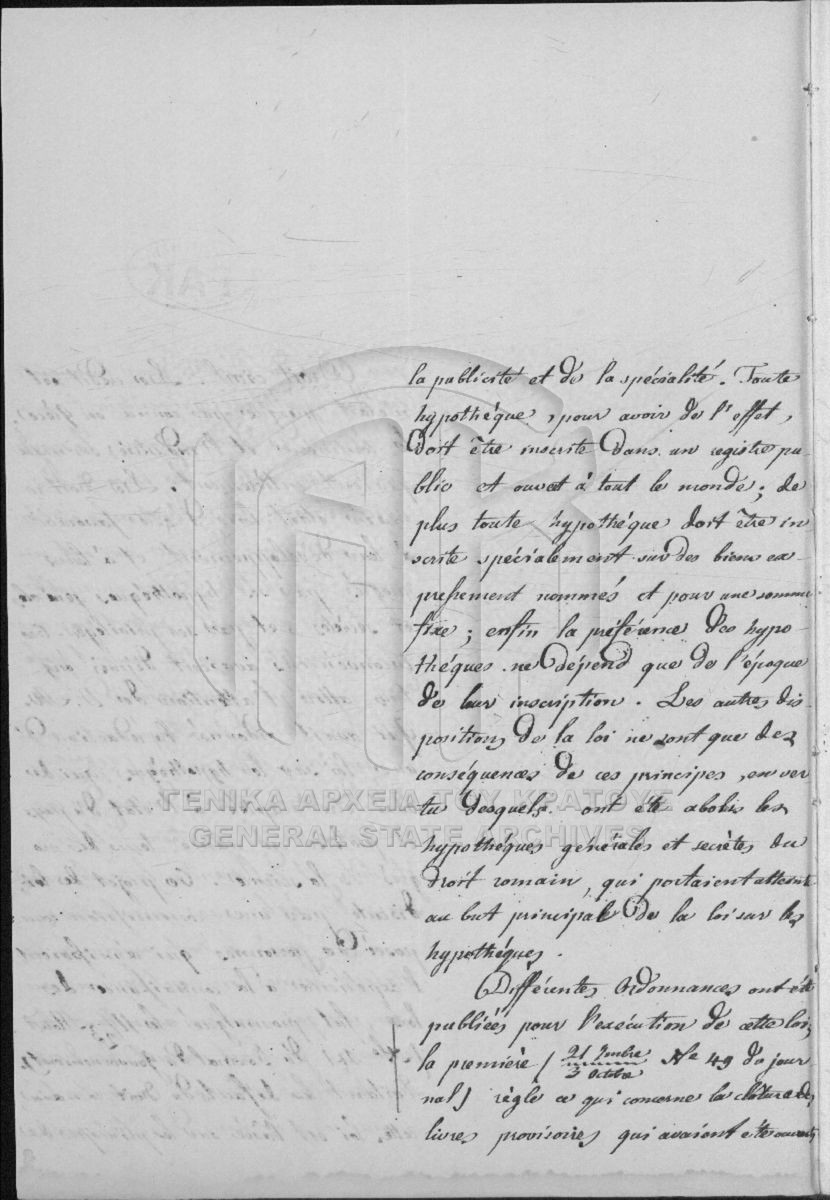 la publicité et de la spécialité. Toute
hypothéque, pour avoir de l'effet,
doit être inscrite dans un registre pu-
blic et ouvert à tout le monde; de
plus toute hypothéque doit être in
scrite spécialement sur des biens ex-
pressement nommés et pour une somme
fixe; enfin la préférence des hypo-
théques ne dépend que de l'époque
de leur inscription. Les autres dis-
positions de la loi ne sont que des
conséquences de ces principes, en ver
tu desquels ont été abolis les
ΓΕΝΙΚΑ ΑΡΧΕΙΑ ΤΟΥ ΚΡΑΤΟΥΣ
GENERAL STATE ARCHIVES
hypothéques générales et secrètes du
droit romain, qui portaient atteinte
au but principal de la loi sur les
hypothéques.
Différentes Ordonnances ont été
publiées pour l'exécution de cette loi;
la premiére (21 7mbre / 3 Octbre Nº 49 du jour
nal) règle ce qui concerne la clôture des
livres provisoires qui avaient été ouverts